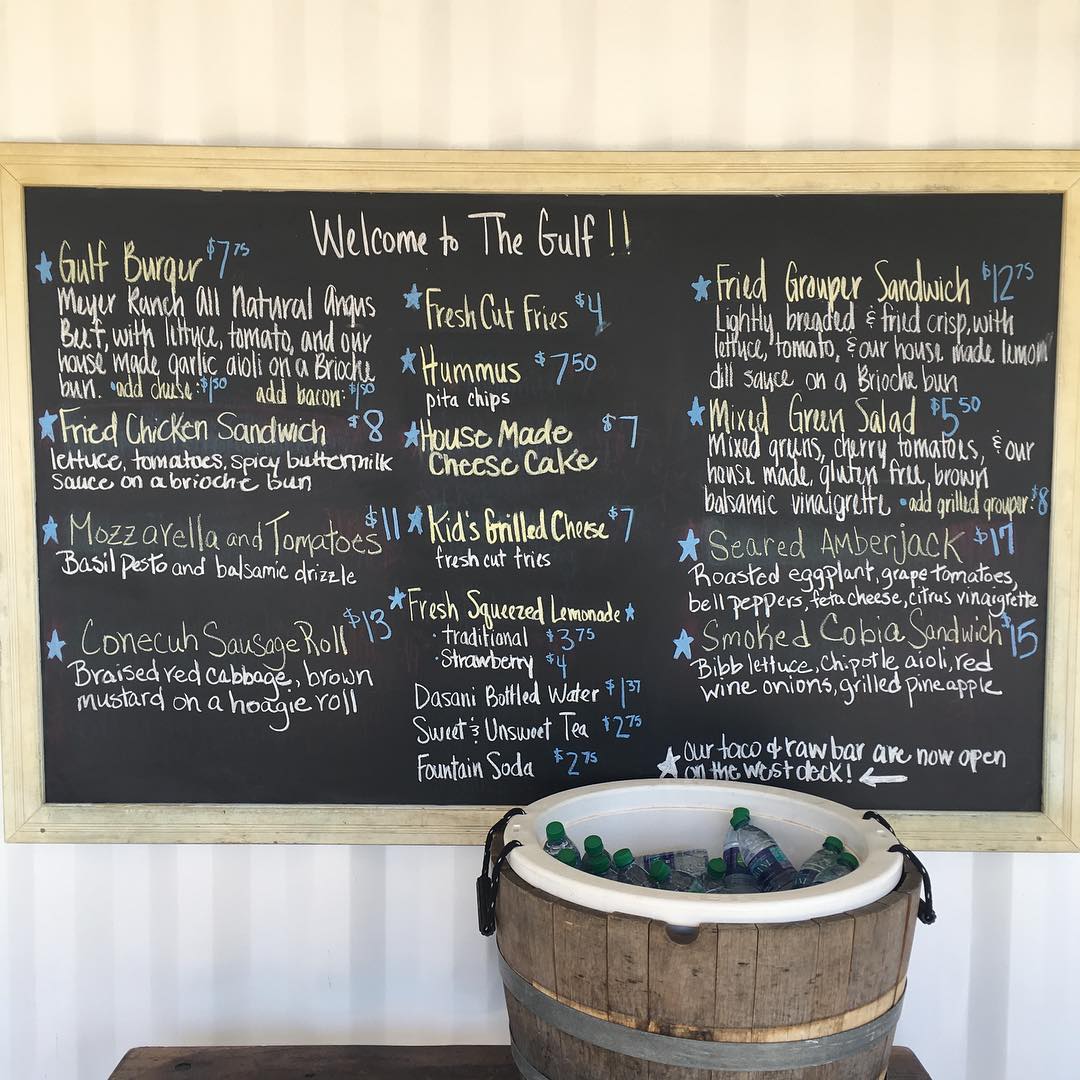 Welcome to The Gulf!!
Gulf Burger $7.75
Meyer Ranch All Natural Angus
Beef, with lettuce, tomato, and our
house made garlic aioli on a Brioche
bun. •add cheese: $1.50 add bacon: $1.50
Fried Chicken Sandwich $8
lettuce, tomatoes, spicy buttermilk
sauce on a brioche bun
Mozzarella and Tomatoes $11
Basil pesto and balsamic drizzle
Conecuh Sausage Roll $13
Braised red cabbage, brown
mustard on a hoagie roll
Fresh Cut Fries $4
Hummus $7.50
pita chips
House Made $7
Cheese Cake
Kid's Grilled Cheese $7
fresh cut fries
Fresh Squeezed Lemonade
· traditional $3.75
· Strawberry $4
Dasani Bottled Water $1.37
Sweet & Unsweet Tea $2.75
Fountain Soda $2.75
Fried Grouper Sandwich $12.75
Lightly breaded & fried crisp, with
lettuce, tomato, & our house made lemon
dill sauce on a Brioche bun
Mixed Green Salad $5.50
Mixed greens, cherry tomatoes, & our
house made, gluten free, brown
balsamic vinaigrette •add grilled grouper: $8
Seared Amberjack $17
Roasted eggplant, grape tomatoes,
bell peppers, feta cheese, citrus vinaigrette
Smoked Cobia Sandwich $15
Bibb lettuce, Chipotle aioli, red
wine onions, grilled pineapple
our taco & raw bar are now open
on the west deck!